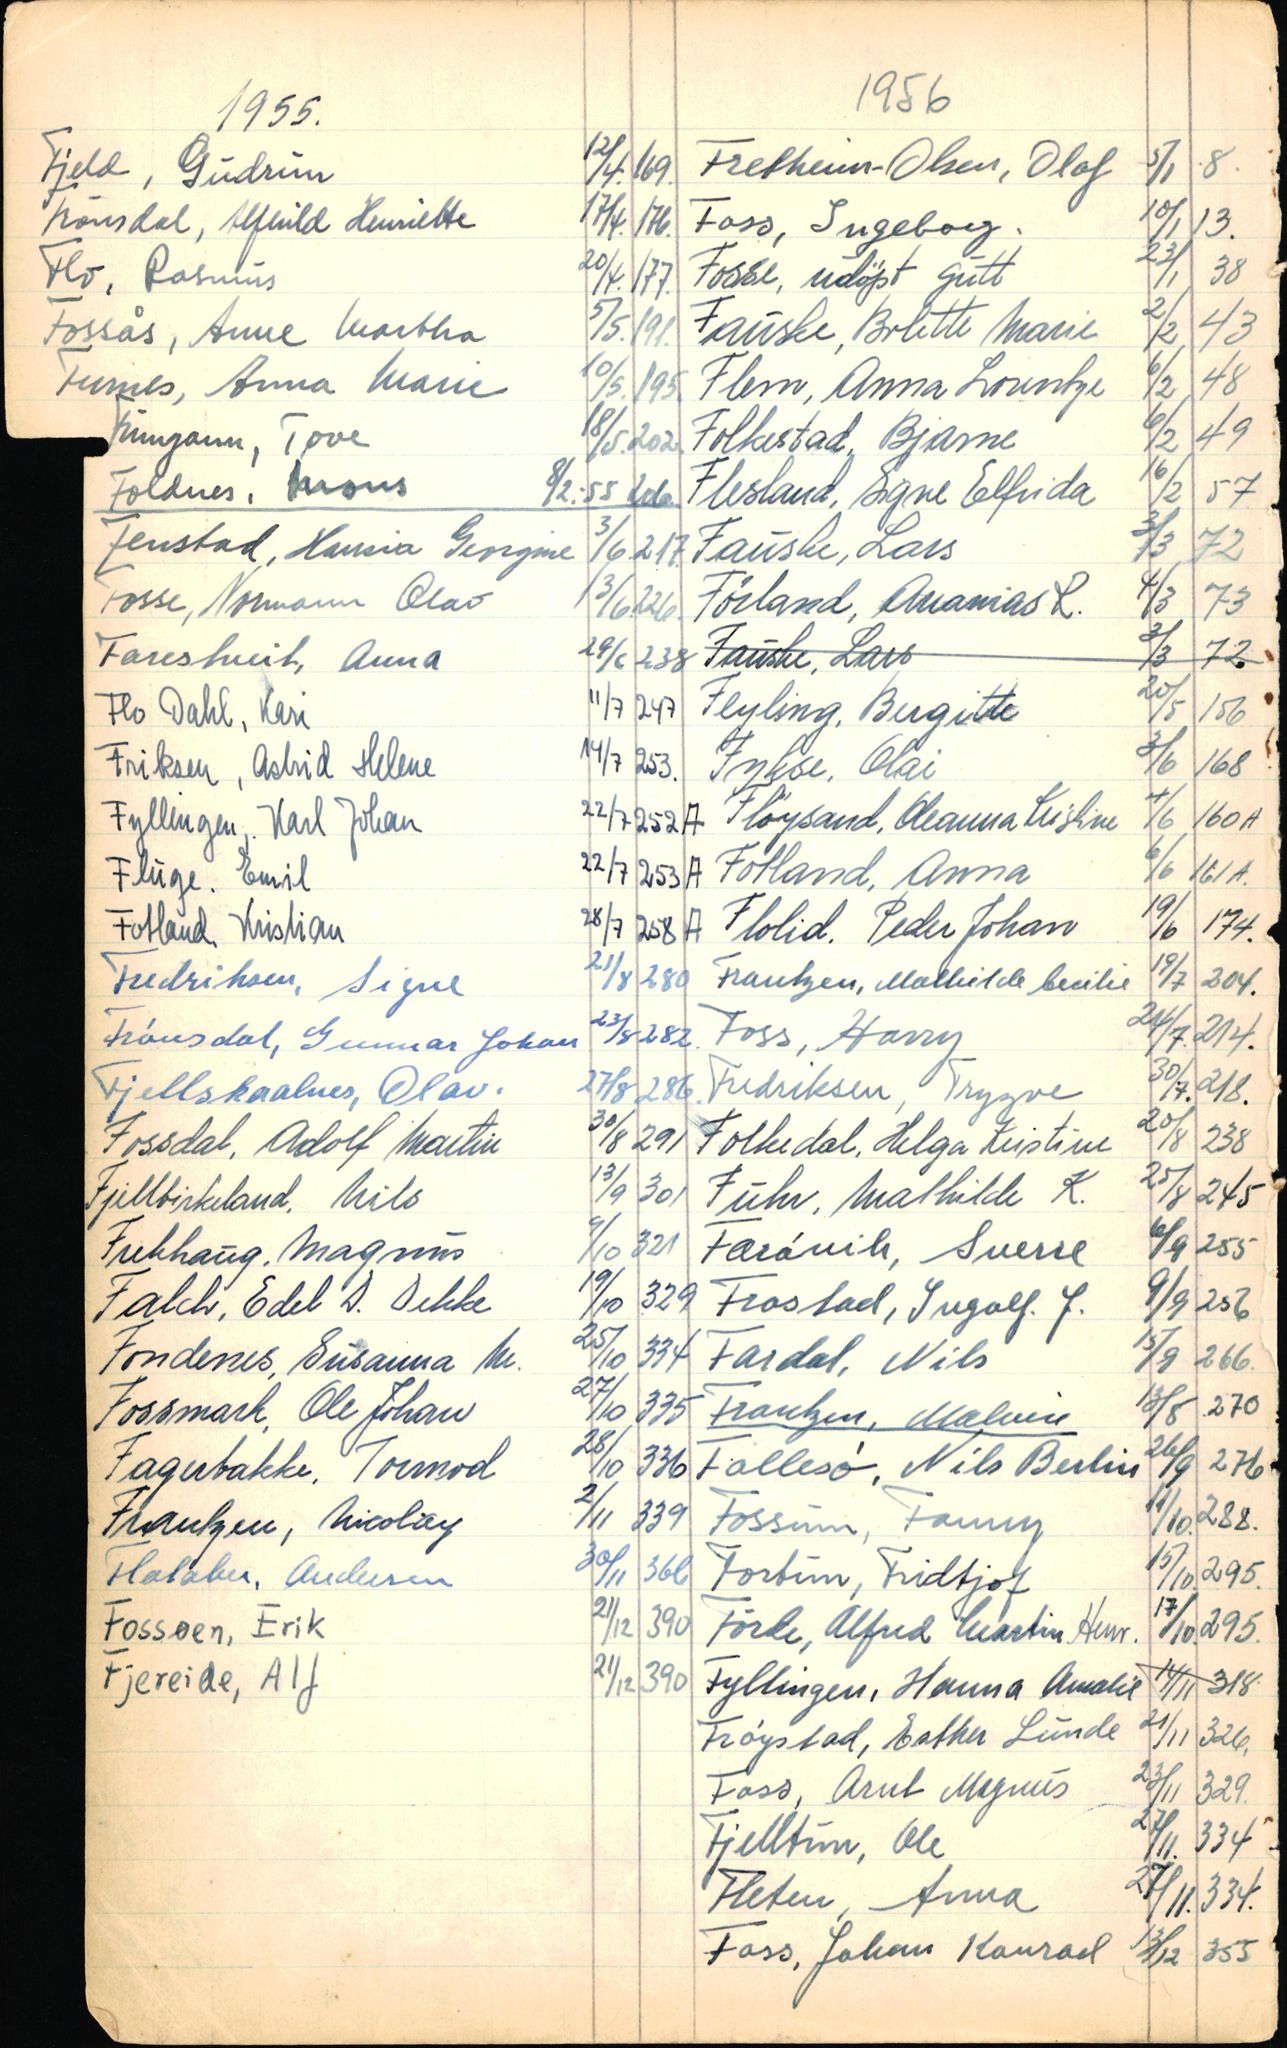 1955.
Fjeld, Gudrun 12/4. 169.
Frönsdal, Alfhild Henriette 17/4. 176.
Flo, Rasmus 20/4. 177.
Fossås, Anne Martha 5/5. 191.
Furnes, Anna Marie 10/5. 195.
Tove 18/5. 202.
Foldnes, Mons 8/2.-55
Fenstad, Hansia Georgine 3/6 217.
Fosse, Normann Olav 13/6. 226.
Farestveit, Anna 29/6 238
Flo Dahl, Kari 11/7 247
Friksen, Astrid Helene 14/7 253.
Fyllingen, Karl Johan 22/7 252 A
Fluge. Emil 22/7 253 A
Fotland. Kristian 28/7 258 A
Fredriksen, Signe 21/8 280
Frönsdal, Gunnar Johan 23/8 282.
Fjellskaalnes, Olav. 27/8 286.
Fossdal, Adolf Martin 30/8 291
Fjellbirkeland, Nils 13/9 301
Frekhaug, Magnus 9/10 321
Falch, Edel D. Dekke 19/10 329
Fondenes, Susanna M. 25/10 334
Fossmark, Ole Johan 27/10 335
Fagerbakke, Tormod 28/10 336
Frantzen, Nicolay 2/11 339
Flataker, Andersen 30/11 366
Fossøen, Erik 21/12 390
Fjereide, Alf 21/12 390
1956
Fretheim-Olsen, Olaf 5/1 8.
Foss, Ingeborg. 10/1 13.
Fosse, udöpt gutt 23/1 38
Fauske, Bolette Marie 2/2 43
Flem, Anna Lorentze 6/2 48
Folkestad, Bjarne 6/2 49
Flesland, Signe Elfrida 16/2 57.
Fauske, Lars 3/3 72
Förland, Ananias L. 4/3 73
Fauske, Lars 3/3 72.
Flyling, Bergitte 20/5 156
Fykse, Olai 3/6 168
Flöysand, Oleanna Kristine 4/6 160 A
Fotland, Anna 6/6 161 A.
Flolid. Peder Johan 19/6 174.
Frantzen, Mathilde Cecilie 19/7 204.
Foss, Harry 24/7. 214.
Fredriksen, Trygve 30/7. 218.
Folkedal, Helga Kristine 20/8 238
Fuhr, Mathilde K. 25/8 245
Farövik, Sverre 6/9 255
Frostad, Ingolf. J. 9/9 256
Fardal, Nils 15/9 266.
Frantzen, Malvin 13/8 270
Follesö, Nils Bertin 26/9 276
Fossum, Fanny 11/10. 288.
Fortun, Fridtjof 15/10. 295.
Förde, Alfred Martin Henr. 17/10. 295.
Fyllingen, Hanna Amalie 14/11 318
Fröystad, Esther Lunde 21/11 326.
Foss, Arnt Magnus 23/11 329.
Fjelltun, Ole 27/11. 334
Fleten, Anna 27/11. 334.
Foss, Johan Konrad 13/12 355